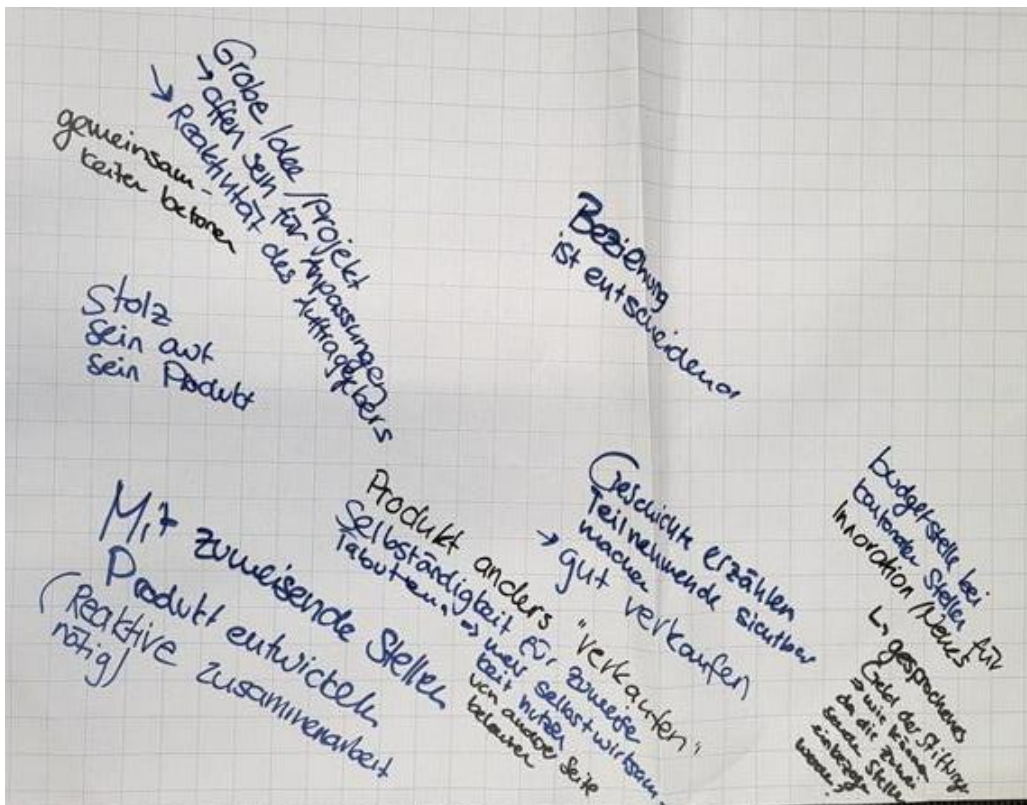 Grobe Idee / Projekt
→ offen sein für Anpassungen
→ Reaktivität des Auftraggebers
gemeinsam-
keiten betonen
Stolz
sein auf
sein Produkt
Beziehung
ist entscheidend
Mit zuweisende Stellen
Produkt entwickeln
(Reaktive Zusammenarbeit
nötig)
Produkt anders "verkaufen"
Selbständigkeit für Zuweise
Tabuthema => mehr selbstwirksam-
keit nutzen
von anderer Seite
beleuchten
Geschichte erzählen
Teilnehmende sichtbar
machen
→ gut verkaufen
budgetstelle bei
kantonalen Stellen für
Innovation / Neues
↳ gesprochenes
Geld der Stiftung
=> wie können
da die zuwei
senden Stellen
einbezogen
werden?